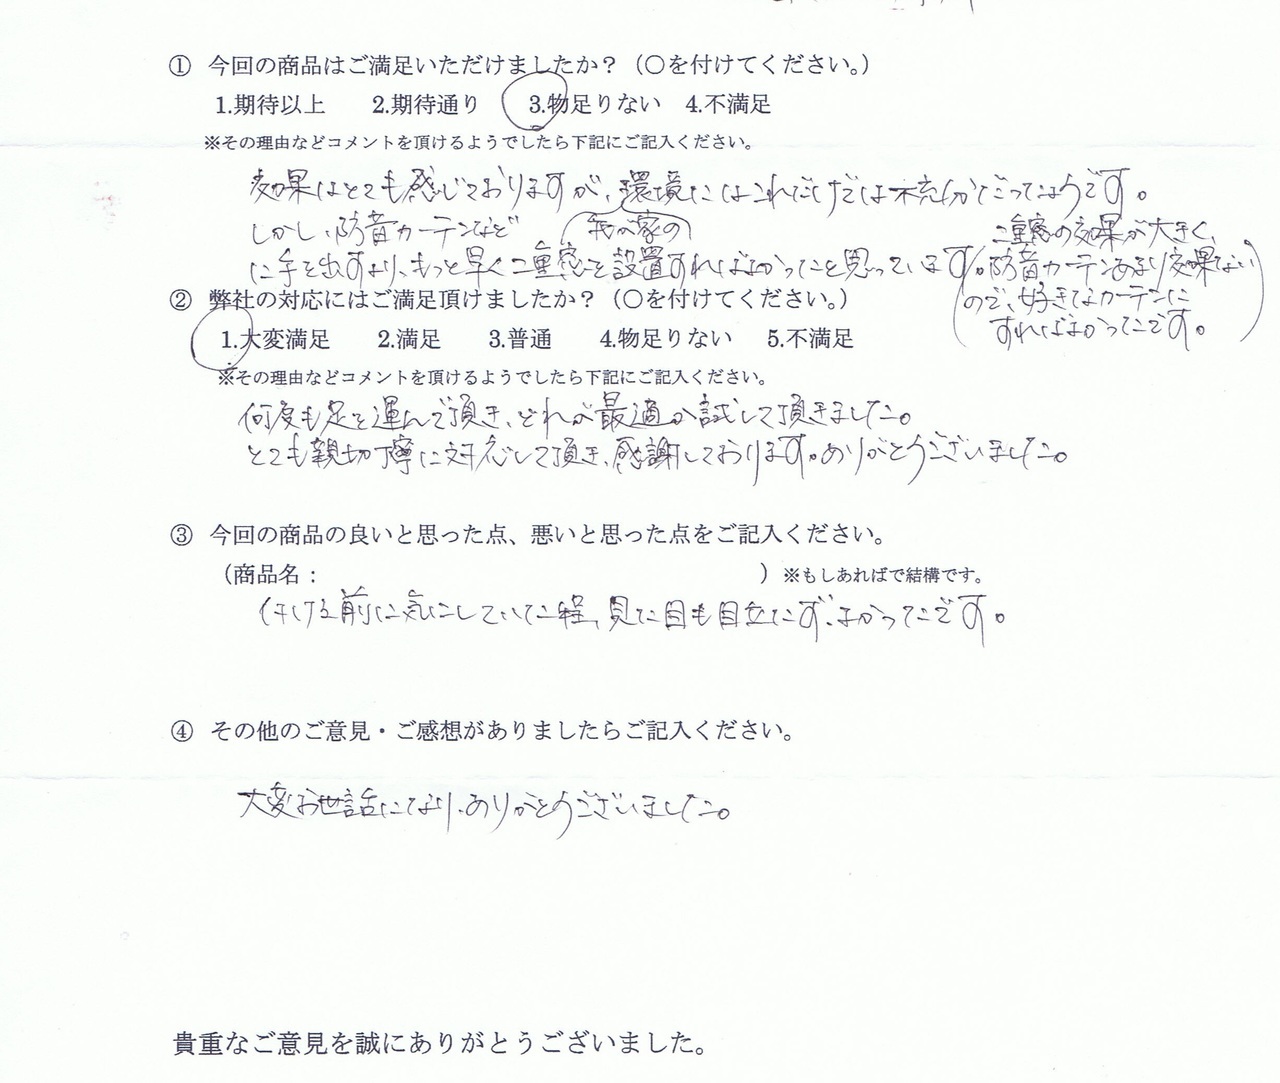 ① 今回の商品はご満足いただけましたか？（○を付けてください。）
1.期待以上 2.期待通り 3.物足りない 4.不満足
※その理由などコメントを頂けるようでしたら下記にご記入ください。
効果はとても感じておりますが、環境にはこれだけでは不充分だったようです。
我が家の
しかし、防音カーテンなど
に手を出すより、もっと早く二重窓を設置すればよかったと思っています。
(二重窓の効果が大きく、
防音カーテンあまり効果ない
ので、好きなカーテンに
すればよかったです。)
② 弊社の対応にはご満足頂けましたか？（○を付けてください。）
1.大変満足 2.満足 3.普通 4.物足りない 5.不満足
※その理由などコメントを頂けるようでしたら下記にご記入ください。
何度も足を運んで頂き、どれが最適か試して頂きました。
とても親切丁寧に対応して頂き、感謝しております。ありがとうございました。
③ 今回の商品の良いと思った点、悪いと思った点をご記入ください。
（商品名： ）※もしあればで結構です。
付ける前に気にしていた程、見た目も目立たず、よかったです。
④ その他のご意見・ご感想がありましたらご記入ください。
大変お世話になり、ありがとうございました。
貴重なご意見を誠にありがとうございました。